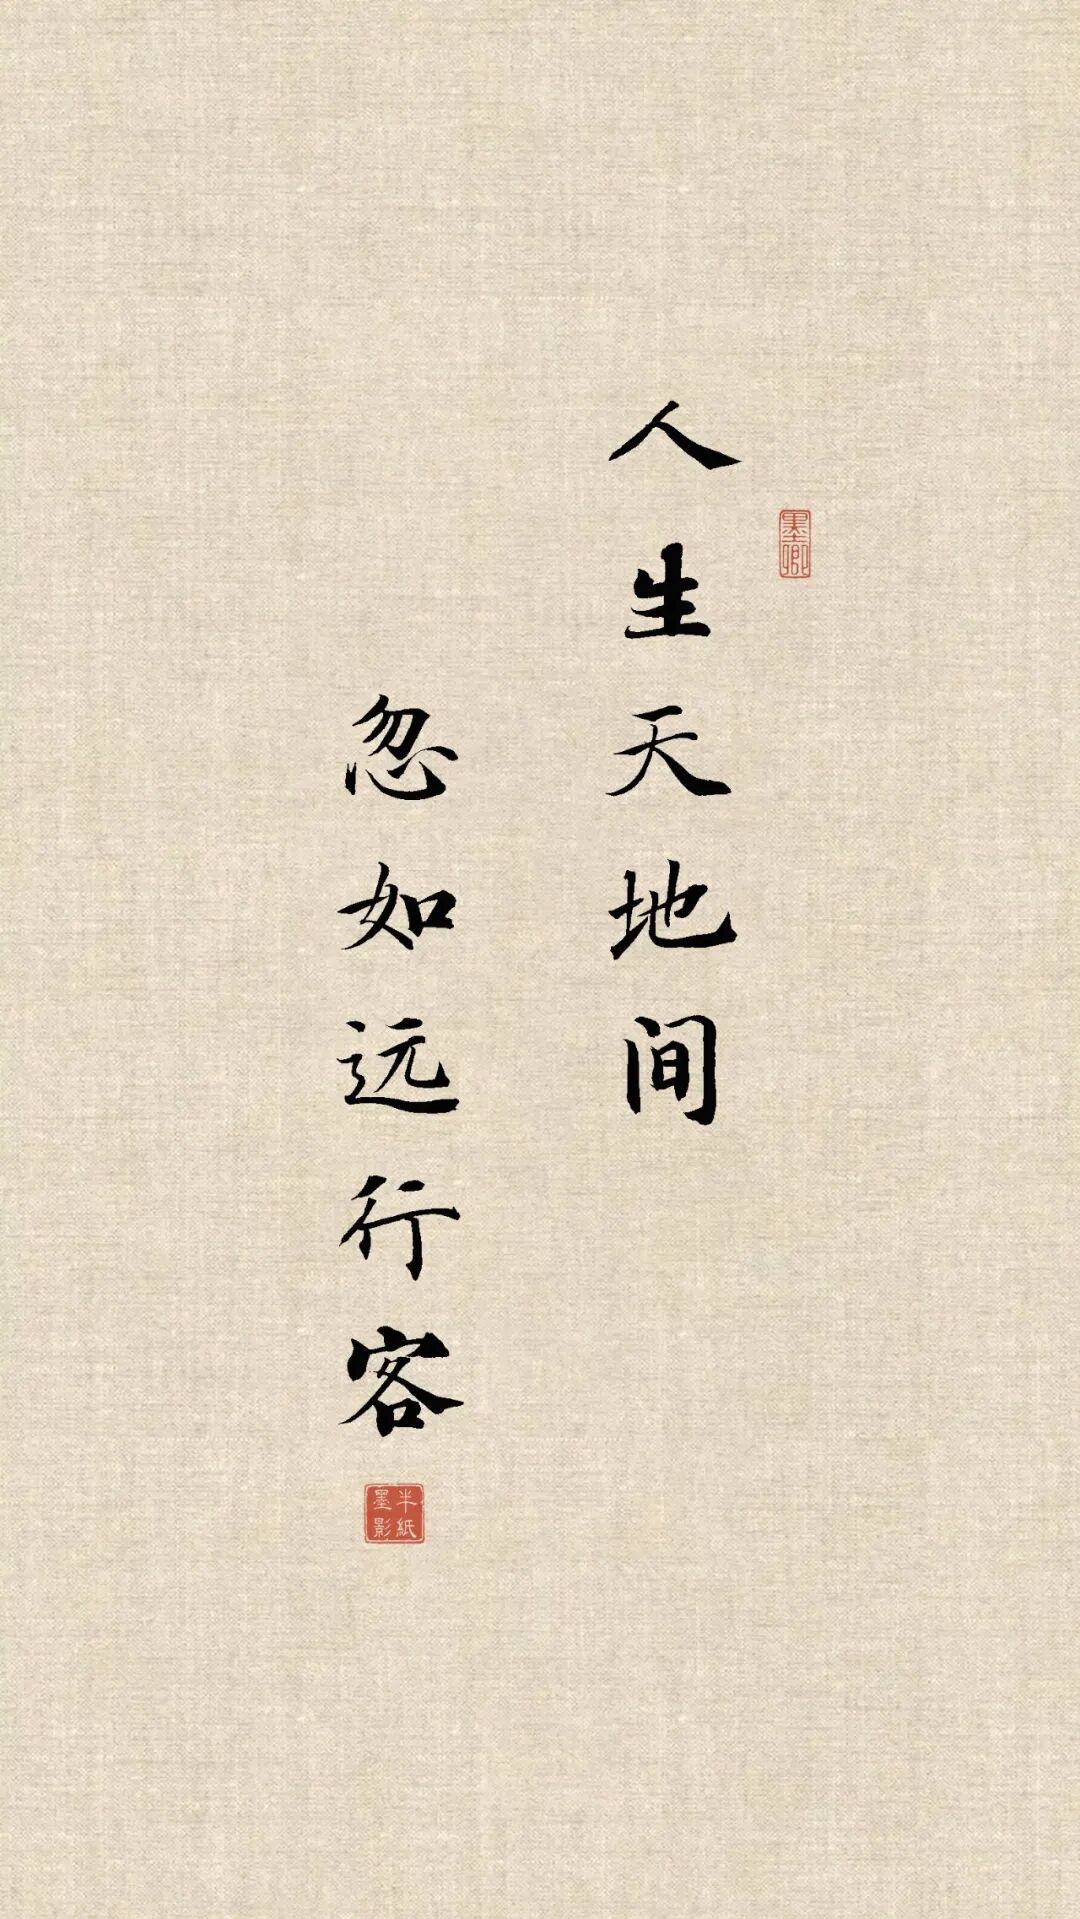 人生天地间
墨卿
忽如远行客
半紙
墨影